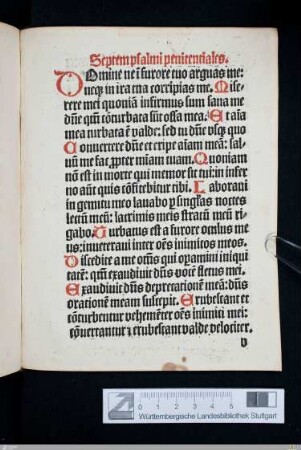 Septem psalmi penitentiales.
Domine ne ī furore tuo arguas me:
neq; in ira tua corripias me. Mise
rere mei quoniā infirmus sum sana me
dn̄e qm̄ cōturbata sūt ossa mea. Et aīa
mea turbata ē valde: sed tu dn̄e vsq; quo
Conuertere dn̄e et eripe aīam meā: sal
uū me fac ꝓpter mīam tuam. Quoniam
nō est in morte qui memor sit tui: in infer
no aūt quis cōfitebitur tibi. Laboraui
in gemitu meo lauabo ꝑ singłas noctes
lectū meū: lacrimis meis stratū meū ri
gabo. Turbatus est a furore oculus me
us: inueteraui inter oēs inimicos meos.
Discedite a me oēs qui oꝑamini iniqui
tatē: qm̄ exaudiuit dn̄s vocē fletus mei.
Exaudiuit dn̄s deprecationē meā: dn̄s
orationē meam suscepit. Erubescant et
cōturbentur vehemēter oēs inimici mei:
cōuertantur ⁊ erubescant valde velociter.
v
0 1 2 3 4 5
Württembergische Landesbibliothek Stuttgart